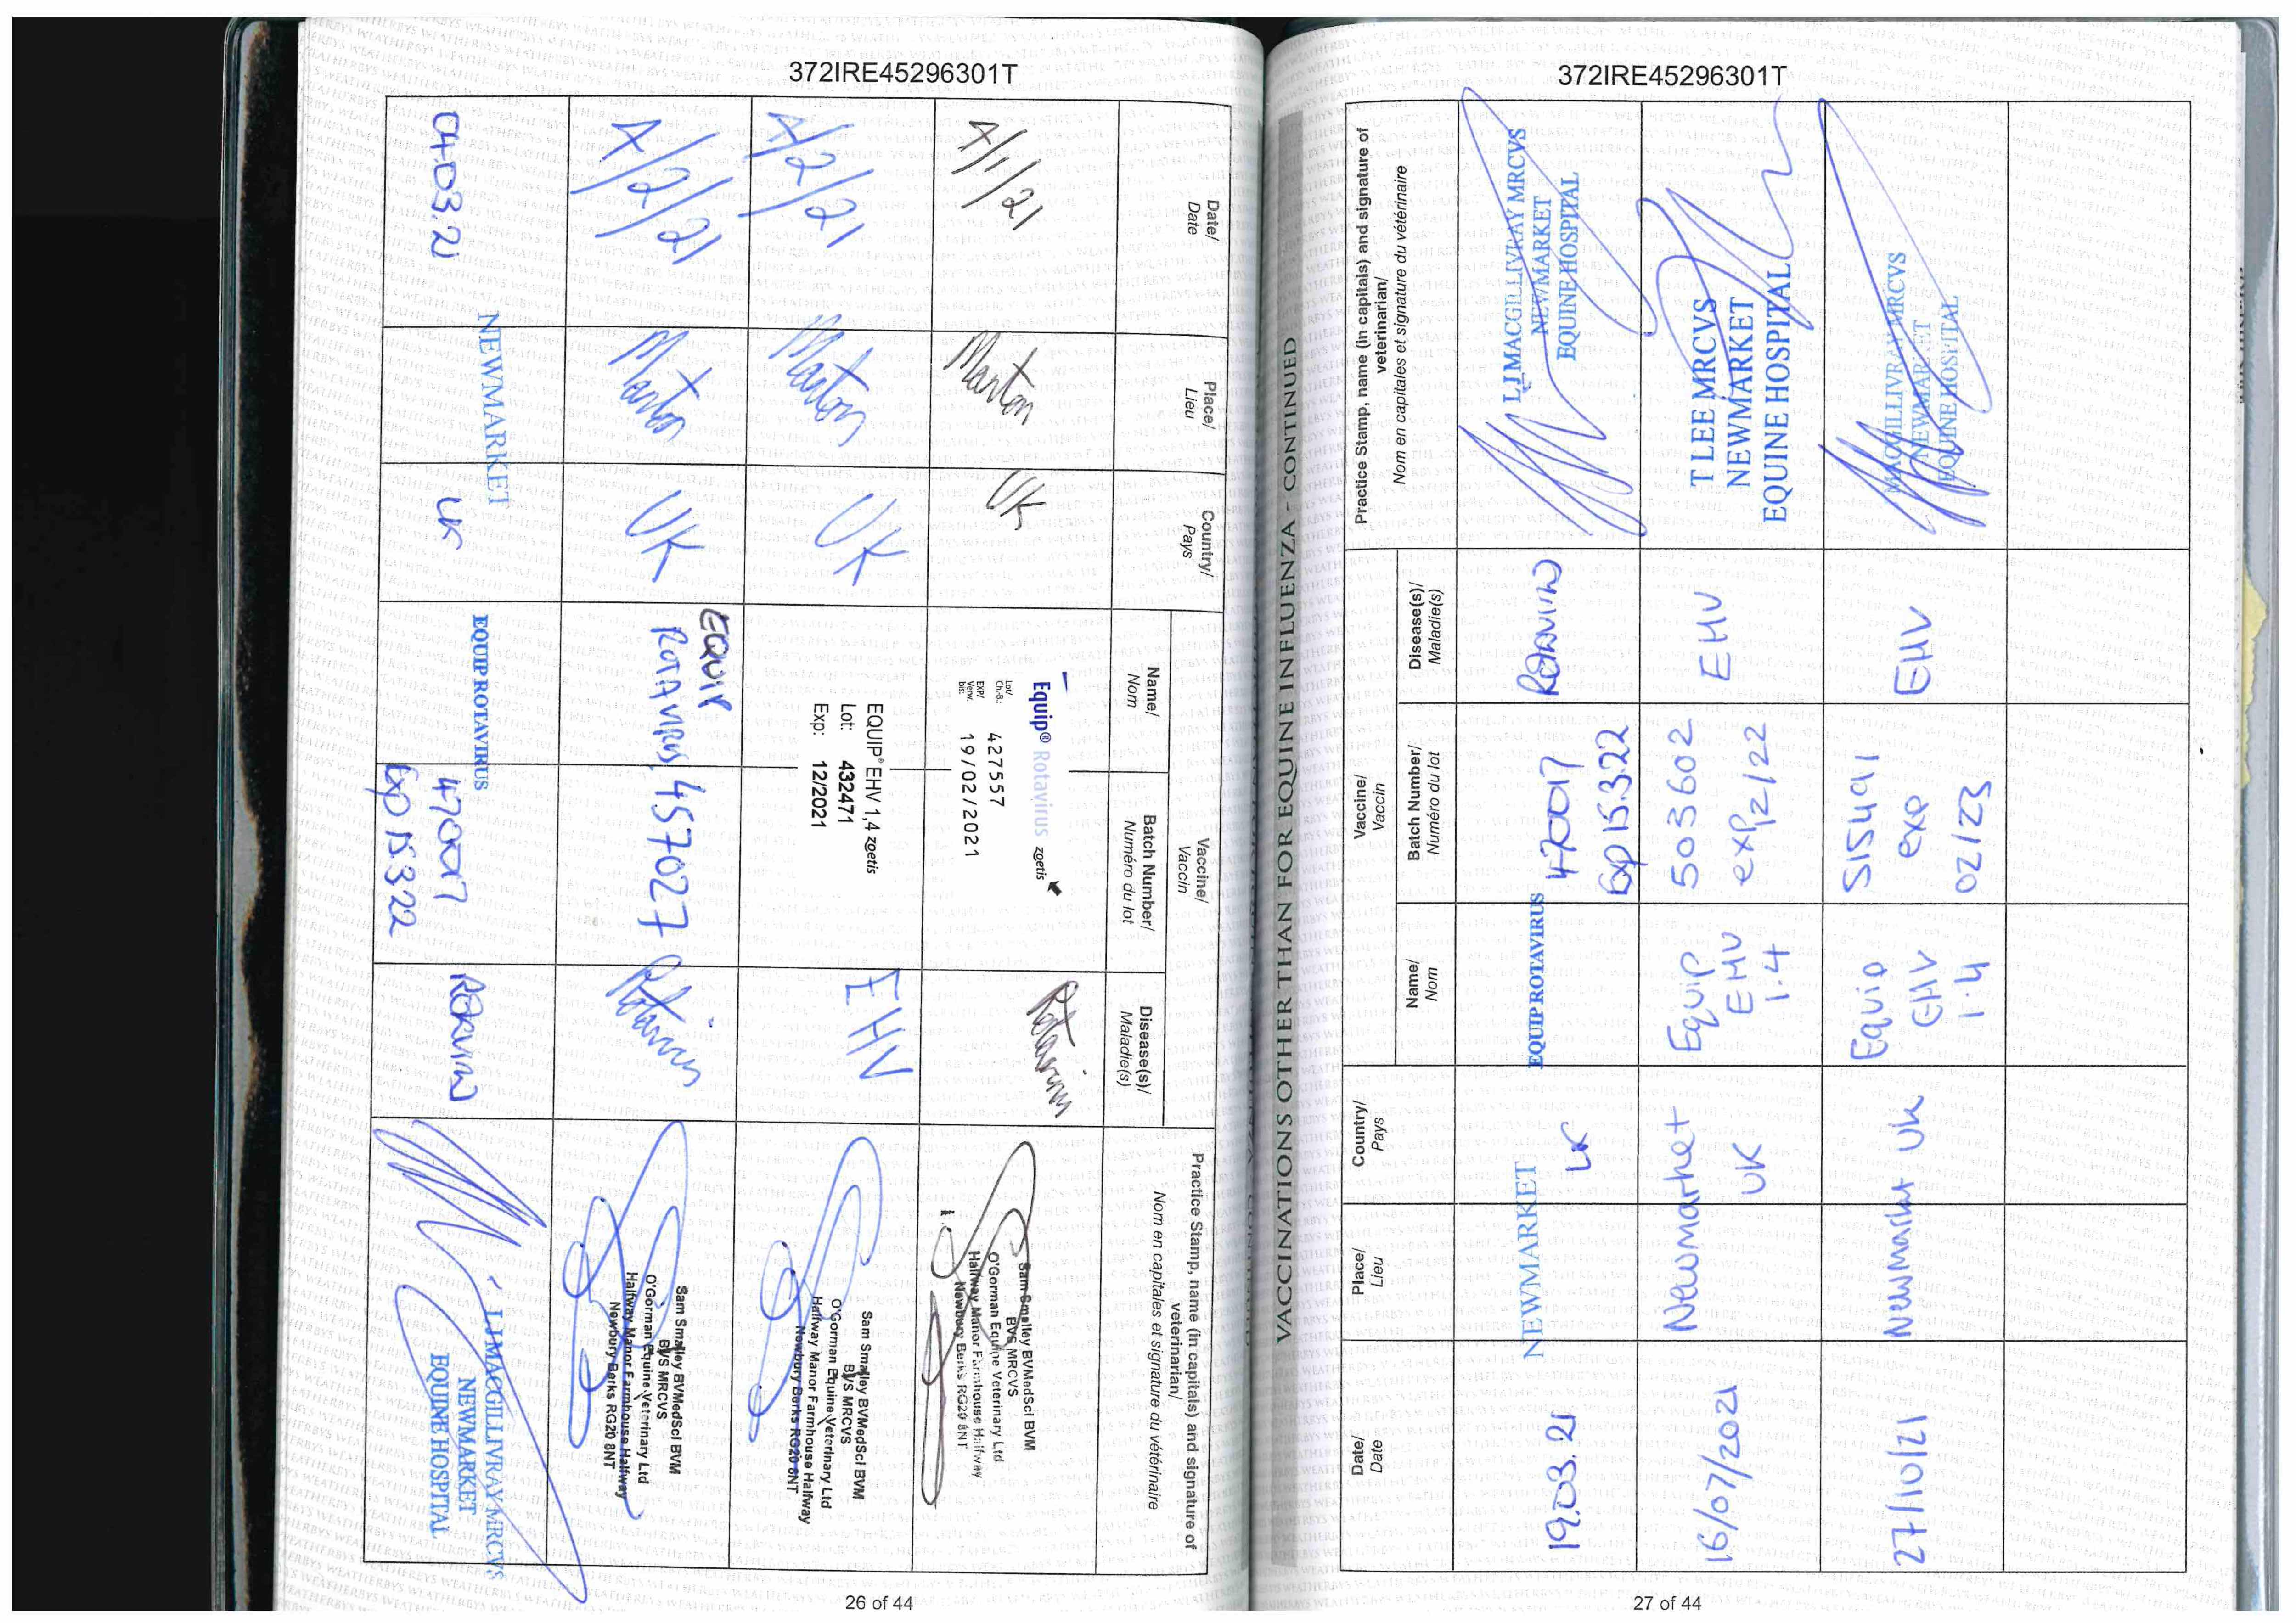 372IRE45296301T
Date/
Date
Place/
Lieu
Country/
Pays
Vaccine/
Vaccin
Name/
Nom
Batch Number/
Numéro du lot
Disease(s)/
Maladie(s)
Practice Stamp, name (in capitals) and signature of
veterinarian/
Nom en capitales et signature du vétérinaire
4/1/21
Manton
UK
Equip® Rotavirus zoetis
Lot/
Ch.-B.: 427557
EXP/
Verw.
bis: 19/02/2021
Rotavirus
Sam Smalley BVMedSci BVM
BVS MRCVS
O'Gorman Equine Veterinary Ltd
Halfway Manor Farmhouse Halfway
Newbury Berks RG20 8NT
4/2/21
Manton
UK
EQUIP® EHV 1,4 zoetis
Lot: 432471
Exp: 12/2021
EHV
Sam Smalley BVMedSci BVM
BVS MRCVS
O'Gorman Equine Veterinary Ltd
Halfway Manor Farmhouse Halfway
Newbury Berks RG20 8NT
4/2/21
Manton
UK
EQUIP
ROTAVIRUS 457027
Rotavirus
Sam Smalley BVMedSci BVM
BVS MRCVS
O'Gorman Equine Veterinary Ltd
Halfway Manor Farmhouse Halfway
Newbury Berks RG20 8NT
04.03.21
NEWMARKET
UK
EQUIP ROTAVIRUS
470017
Exp 15.3.22
LJMACGILLIVRAY MRCVS
NEWMARKET
EQUINE HOSPITAL
26 of 44
372IRE45296301T
VACCINATIONS OTHER THAN FOR EQUINE INFLUENZA - CONTINUED
Date/
Date
Place/
Lieu
Country/
Pays
Vaccine/
Vaccin
Name/
Nom
Batch Number/
Numéro du lot
Disease(s)/
Maladie(s)
Practice Stamp, name (in capitals) and signature of
veterinarian/
Nom en capitales et signature du vétérinaire
19.03.21
NEWMARKET
UK
EQUIP ROTAVIRUS
470017
Exp 15.3.22
LJMACGILLIVRAY MRCVS
NEWMARKET
EQUINE HOSPITAL
16/07/2021
Newmarket
UK
Equip
EHV
1.4
503602
exp 12/22
EHV
T LEE MRCVS
NEWMARKET
EQUINE HOSPITAL
27/10/21
Newmarket UK
Equip
EHV
1.4
515491
exp
02/23
EHV
MACGILLIVRAY MRCVS
NEWMARKET
EQUINE HOSPITAL
27 of 44